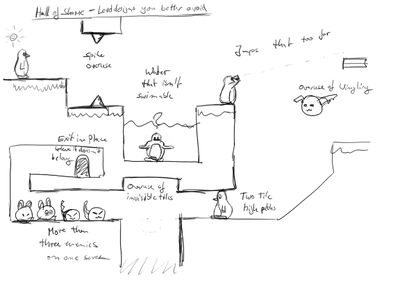 Hall of Shame - Leveldesigns you better avoid
Spike
overuse
Water
that isn't
swimable
Jumps that too far
Overuse of Wingling
Exit in Place
where it doesn't
belong
Overuse of
invisible tiles
Two Tile
high paths
More than
three enemies
on one screen